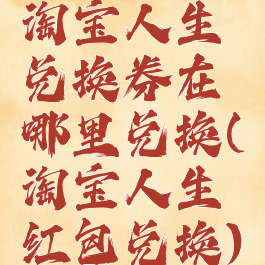 淘宝人生
兑换券在
哪里兑换(
淘宝人生
红包兑换)